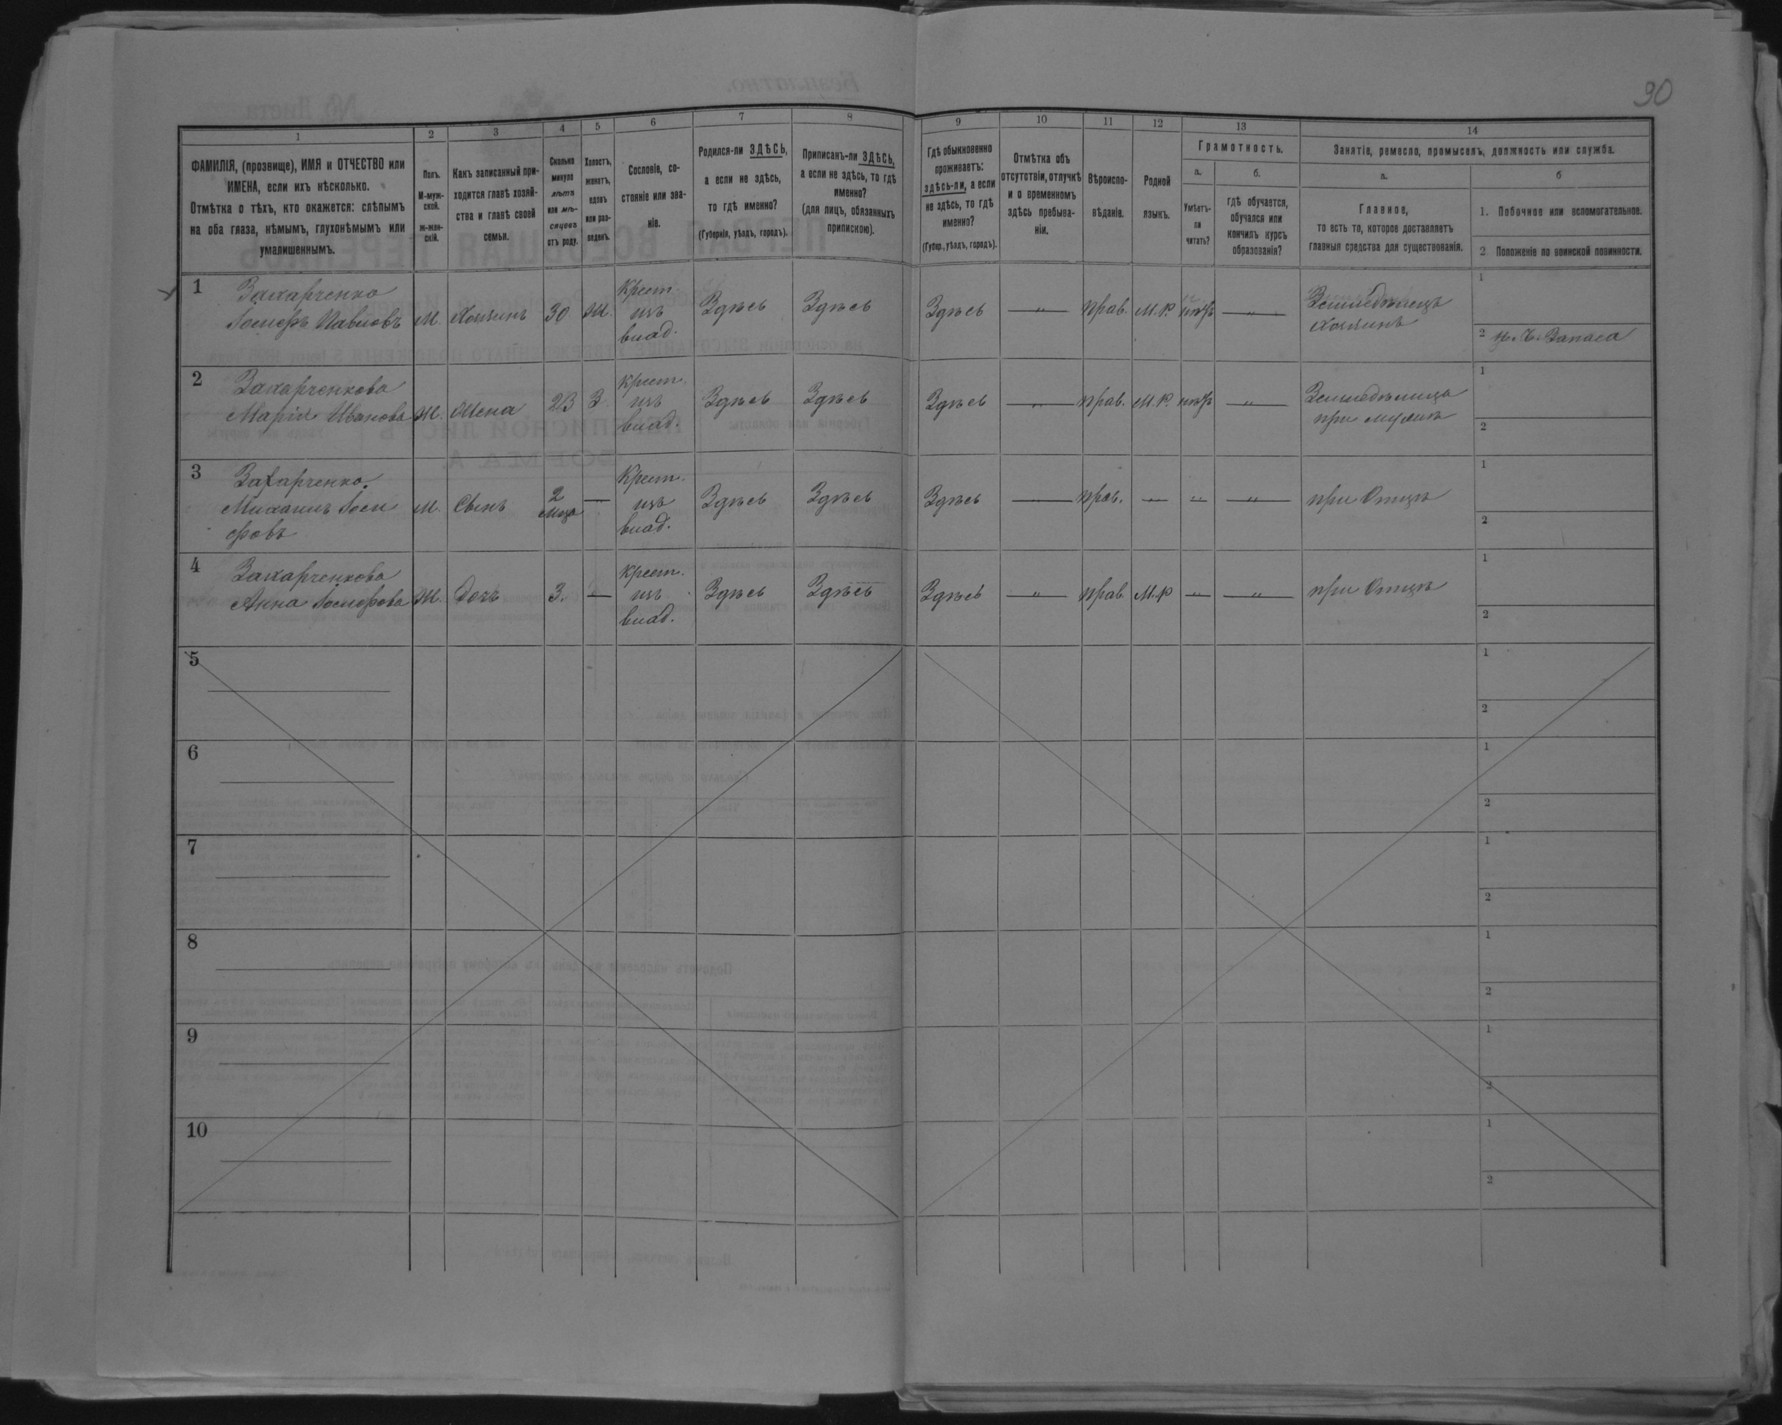 90
1
2
3
4
5
6
7
8
9
10
11
12
13
14
ФАМИЛІЯ, (прозвище), ИМЯ и ОТЧЕСТВО или
ИМЕНА, если ихъ нѣсколько.
Отмѣтка о тѣхъ, кто окажется: слѣпымъ
на оба глаза, нѣмымъ, глухонѣмымъ или
умалишеннымъ.
Полъ.
М-муж-
ской.
ж-жен-
скій.
Какъ записанный при-
ходится главѣ хозяй-
ства и главѣ своей
семьи.
Сколько
минуло
лѣтъ
или мѣ-
сяцевъ
отъ роду.
Холостъ,
женатъ,
вдовъ
или раз-
веденъ.
Сословіе, со-
стояніе или зва-
ніе.
Родился-ли ЗДѢСЬ,
а если не здѣсь,
то гдѣ именно?
(Губернія, уѣздъ, городъ).
Приписанъ-ли ЗДѢСЬ,
а если не здѣсь, то гдѣ
именно?
(для лицъ, обязанныхъ
припискою).
Гдѣ обыкновенно
проживаетъ:
здѣсь-ли, а если
не здѣсь, то гдѣ
именно?
(Губер., уѣздъ, городъ).
Отмѣтка объ
отсутствіи, отлучкѣ
и о временномъ
здѣсь пребыва-
ніи.
Вѣроиспо-
вѣданіе.
Родной
языкъ.
Грамотность.
а.
Умѣетъ-
ли
читать?
б.
гдѣ обучается,
обучался или
кончилъ курсъ
образованія?
Занятіе, ремесло, промыселъ, должность или служба.
а.
Главное,
то есть то, которое доставляетъ
главныя средства для существованія.
б
1. Побочное или вспомогательное.
2 Положеніе по воинской повинности.
1
Захарченко
Іосифъ Павловъ
М.
Хозяинъ
30
Ж.
Крест.
изъ
влад.
Здѣсь
Здѣсь
Здѣсь
— „ —
прав.
М.Р.
нѣтъ
— „ —
Земледѣлецъ
хозяинъ
1
2
Н. Ч. Запаса
2
Захарченкова
Марія Иванова
Ж.
Жена
23
З.
Крест.
изъ
влад.
Здѣсь
Здѣсь
Здѣсь
— „ —
прав.
М.Р.
нѣтъ
— „ —
Земледѣлица
при мужѣ
1
2
3
Захарченко
Михаилъ Іоси
фовъ
М.
Сынъ
2
мца
—
Крест.
изъ
влад.
Здѣсь
Здѣсь
Здѣсь
— „ —
прав.
— „ —
— „ —
— „ —
при Отцѣ
1
2
4
Захарченкова
Анна Іосифова
Ж.
Дочь
3.
—
Крест.
изъ
влад.
Здѣсь
Здѣсь
Здѣсь
— „ —
прав
М.Р
— „ —
— „ —
при Отцѣ
1
2
5
1
2
6
1
2
7
1
2
8
1
2
9
1
2
10
1
2